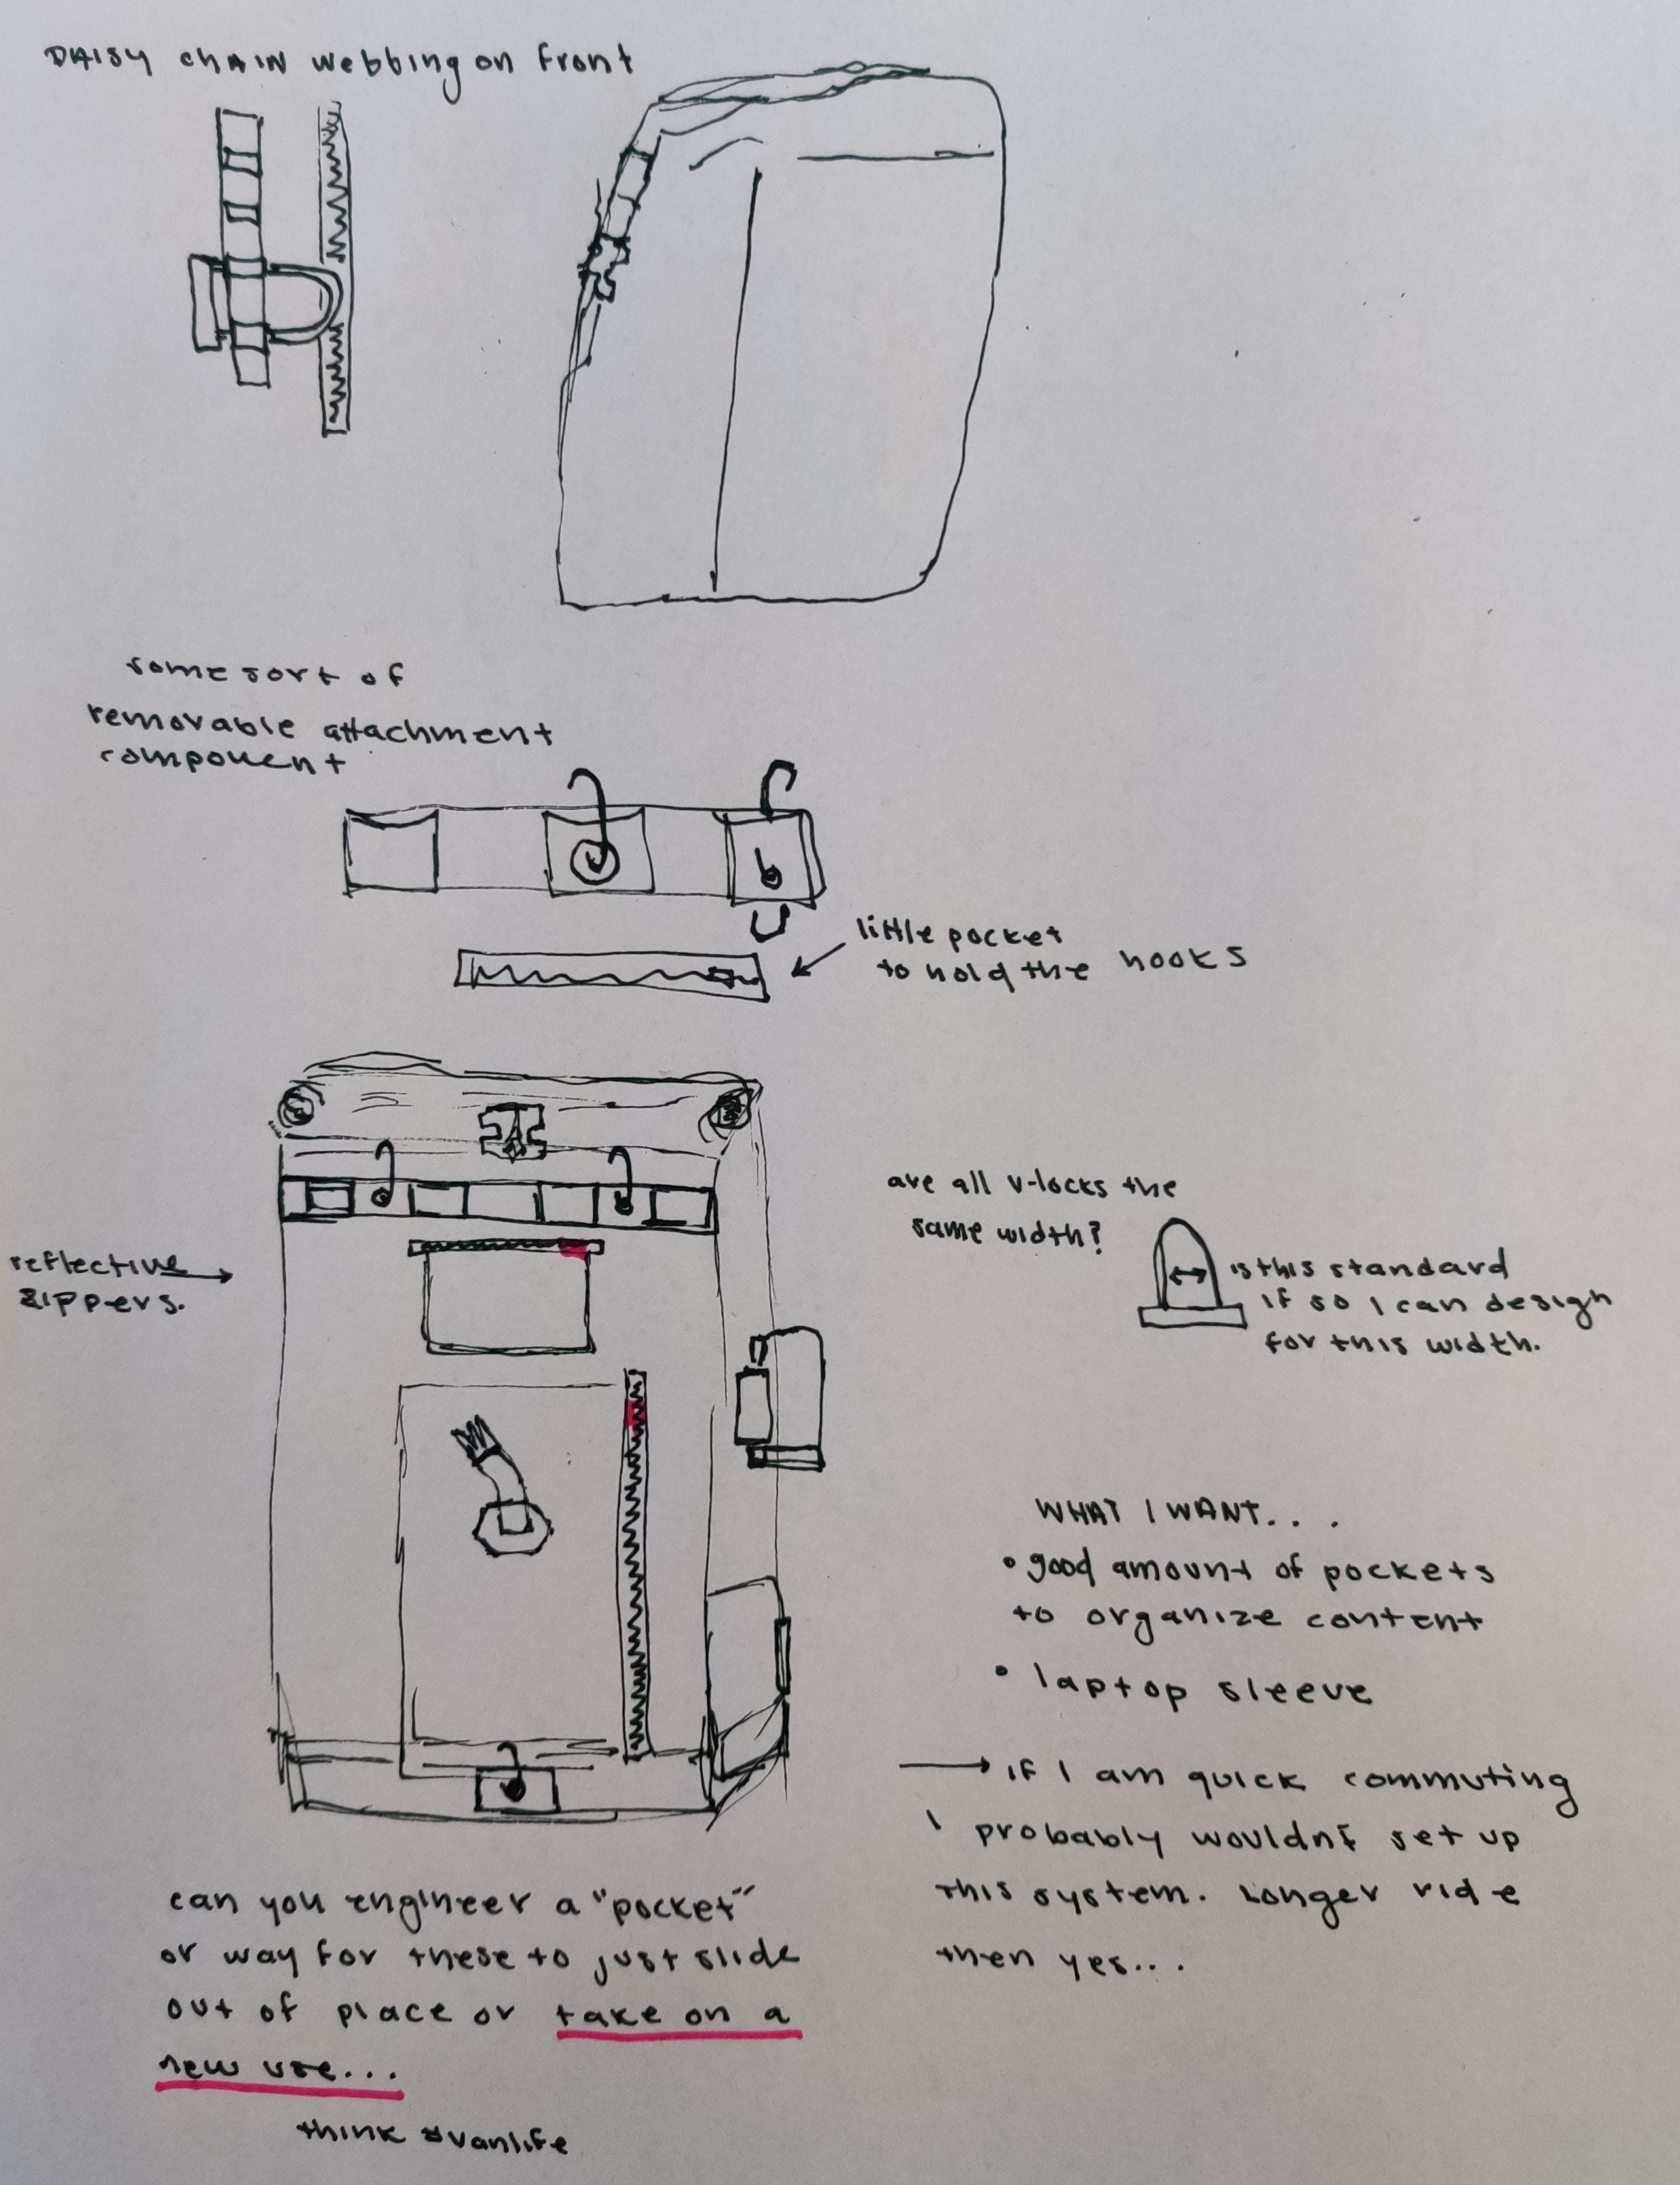 DAISY chAIN webbing on front
some sort of
removable attachment
component
little pocket
to hold the hooks
are all v-locks the
same width?
reflective
zippers.
is this standard
if so I can design
for this width.
WHAT I WANT...
• good amount of pockets
to organize content
• laptop sleeve
→ if I am quick commuting
I probably wouldnt set up
this system. Longer ride
then yes...
can you engineer a "pocket"
or way for these to just slide
out of place or take on a
new use...
think #vanlife